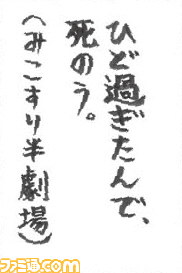 ひど過ぎたんで、
死のう。
（みこすり半劇場）
ファミ通.com